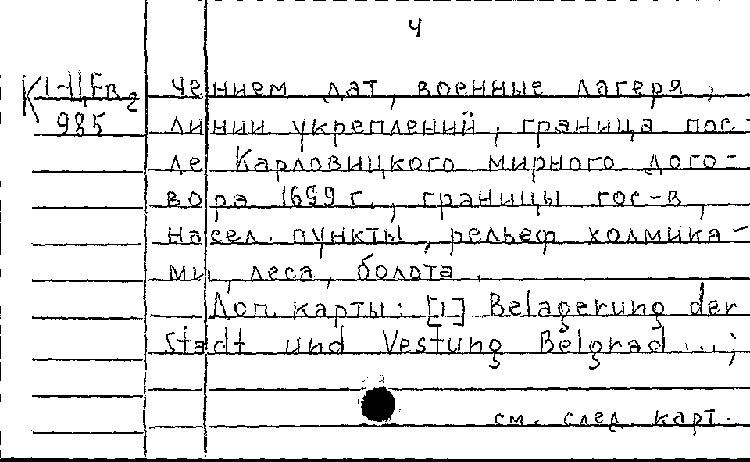 4
К 1-II Ев 2
985
чением дат, военные лагеря,
линии укреплений, граница пос-
ле Карловицкого мирного дого-
вора 1699 г., границы гос-в,
насел. пункты, рельеф холмика-
ми, леса, болота.
Доп. карты: [1] Belagerung der
Stadt und Vestung Belgrad...;
см. след. карт.